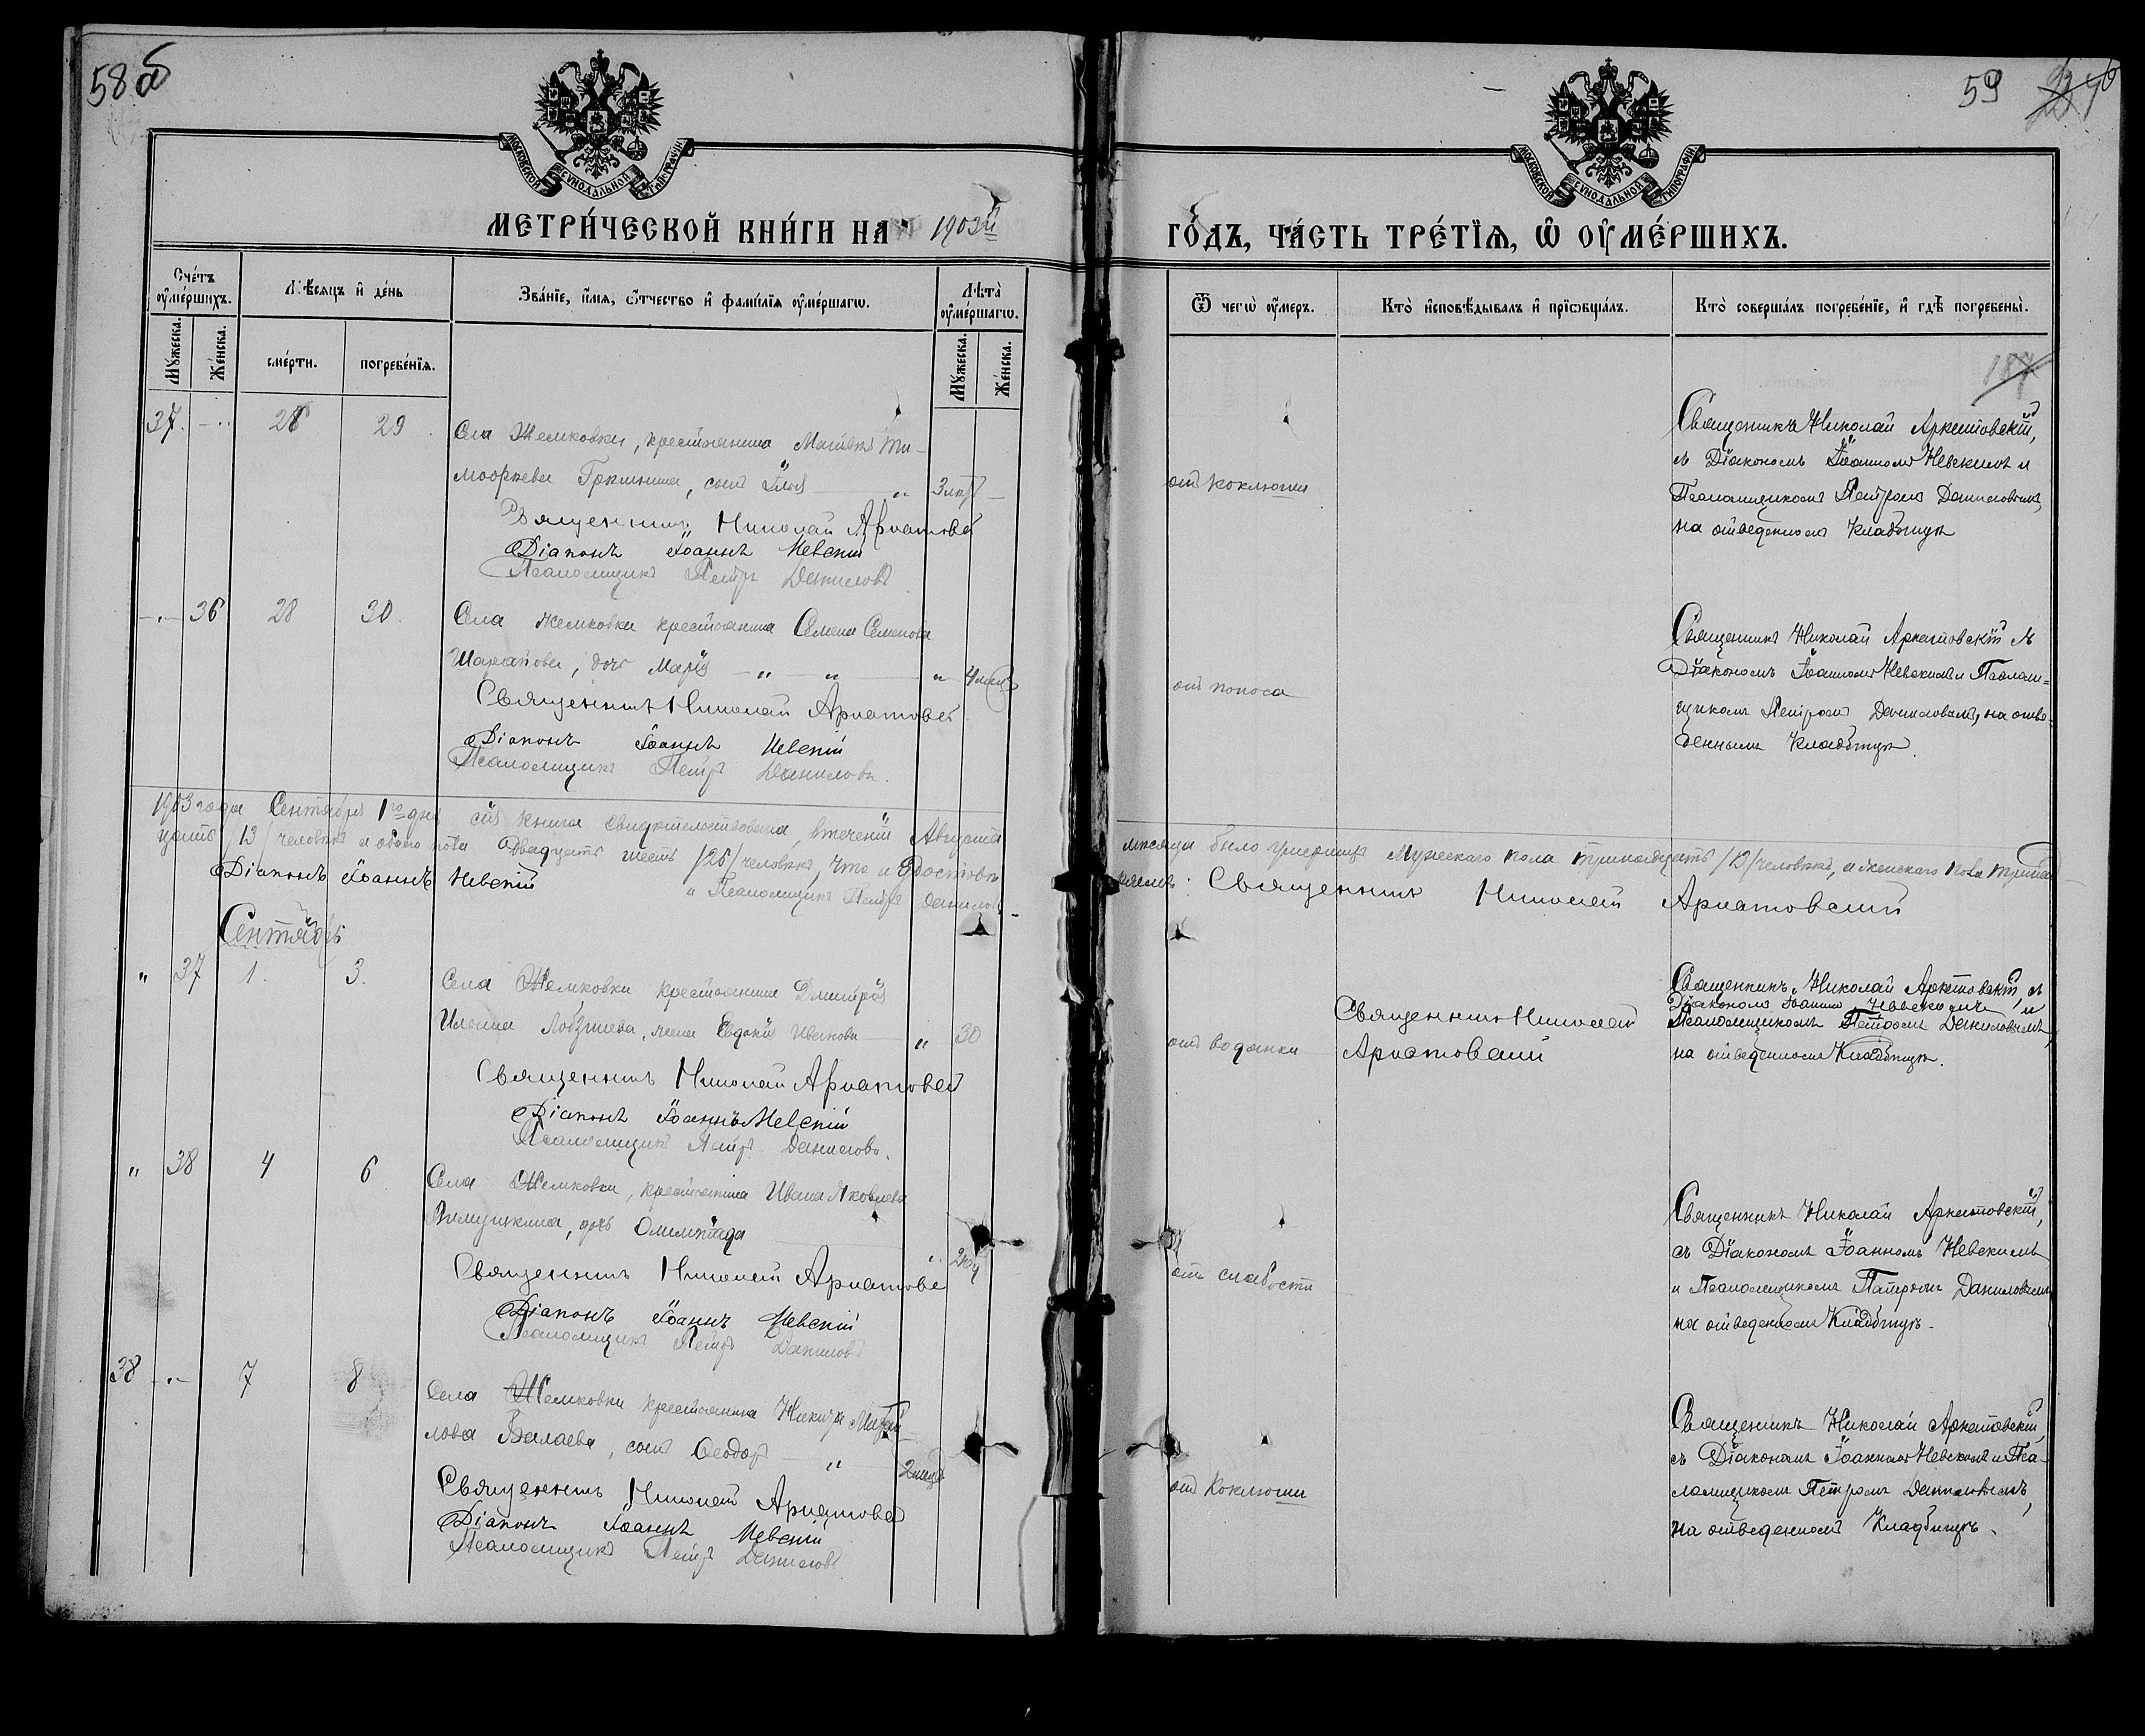 58 об
59
МОСКОВСКОЙ СѴНОДАЛЬНОЙ ТИПОГРАФІИ
МОСКОВСКОЙ СѴНОДАЛЬНОЙ ТИПОГРАФІИ
МЕТРИ́ЧЕСКОЙ КНИ́ГИ НА 1903й
ГО́ДЪ, ЧА́СТЬ ТРЕ́ТІѦ, Ѡ ОУМЕ́РШИХЪ.
Сче́тъ оуме́ршихъ.
Мѣсяцъ и де́нь
Зва́ніе, и́мя, о́тчество и фами́лія оуме́ршагѡ.
Лѣта̀ оуме́ршагѡ.
Ѿ чегѡ̀ оу́меръ.
Кто̀ исповѣ́дывалъ и пріѡбща́лъ.
Кто̀ соверша́лъ погребе́ніе, и гдѣ̀ погребены̀.
Му́жеска.
Же́нска.
сме́рти.
погребе́нія.
Му́жеска.
Же́нска.
37. 28 29
Села Жемковки, крестьянина Матвѣя Ти-
моѳеева, сынъ Илья 3
Священникъ Николай Аркатовскій
Діаконъ Іоаннъ Невскій
Псаломщикъ Петръ Даниловъ
отъ коклюша
Священникъ Николай Аркатовскій,
съ Діакономъ Іоанномъ Невскимъ и
Псаломщикомъ Петромъ Даниловымъ,
на отведенномъ Кладбищѣ
36 28 30.
Села Жемковки крестьянина Семена Семенова
Шарапова, дочь Марія 4 мѣс
Священникъ Николай Аркатовскій
Діаконъ Іоаннъ Невскій
Псаломщикъ Петръ Даниловъ.
отъ поноса
Священникъ Николай Аркатовскій съ
Діакономъ Іоанномъ Невскимъ и Псалом=
щикомъ Петромъ Даниловымъ, на отве-
денномъ Кладбищѣ.
1903 года Сентября 1го дня сія книга свидѣтельствована, втеченіи Августа мѣсяца было умершихъ Мужескаго пола тринадцать /13/ человѣкъ, а женскаго пола тринад-
цать /13/ человѣкъ а обоего пола Двадцать шесть /26/ человѣкъ, что и Удостовѣ-
ряемъ: Священникъ Николай Аркатовскій
Діаконъ Іоаннъ Невскій и Псаломщикъ Петръ Даниловъ
Сентябрь
" 37 1. 3.
Села Жемковки крестьянина Димитрія
Ильина, жена Евдокія Иванова " 30
Священникъ Николай Аркатовскій
Діаконъ Іоаннъ Невскій
Псаломщикъ Петръ Даниловъ.
отъ водянки
Священникъ Николай
Аркатовскій
Священникъ Николай Аркатовскій, съ
Діакономъ Іоанномъ Невскимъ и
Псаломщикомъ Петромъ Даниловымъ,
на отведенномъ Кладбищѣ.
" 38 4 6
Села Жемковки, крестьянина Ивана Яковлева
дочь Олимпіада
Священникъ Николай Аркатовскій
Діаконъ Іоаннъ Невскій
Псаломщикъ Петръ Даниловъ
отъ слабости
Священникъ Николай Аркатовскій,
съ Діакономъ Іоанномъ Невскимъ
и Псаломщикомъ Петромъ Даниловымъ
на отведенномъ Кладбищѣ.
38 7 8
Села Жемковки крестьянина Никиты Михай-
лова Валаева, сынъ Ѳеодоръ " 2 мѣсяц
Священникъ Николай Аркатовскій
Діаконъ Іоаннъ Невскій
Псаломщикъ Петръ Даниловъ
отъ Коклюша
Священникъ Николай Аркатовскій,
съ Діакономъ Іоанномъ Невскимъ и Пса-
ломщикомъ Петромъ Даниловымъ,
на отведенномъ Кладбищѣ.